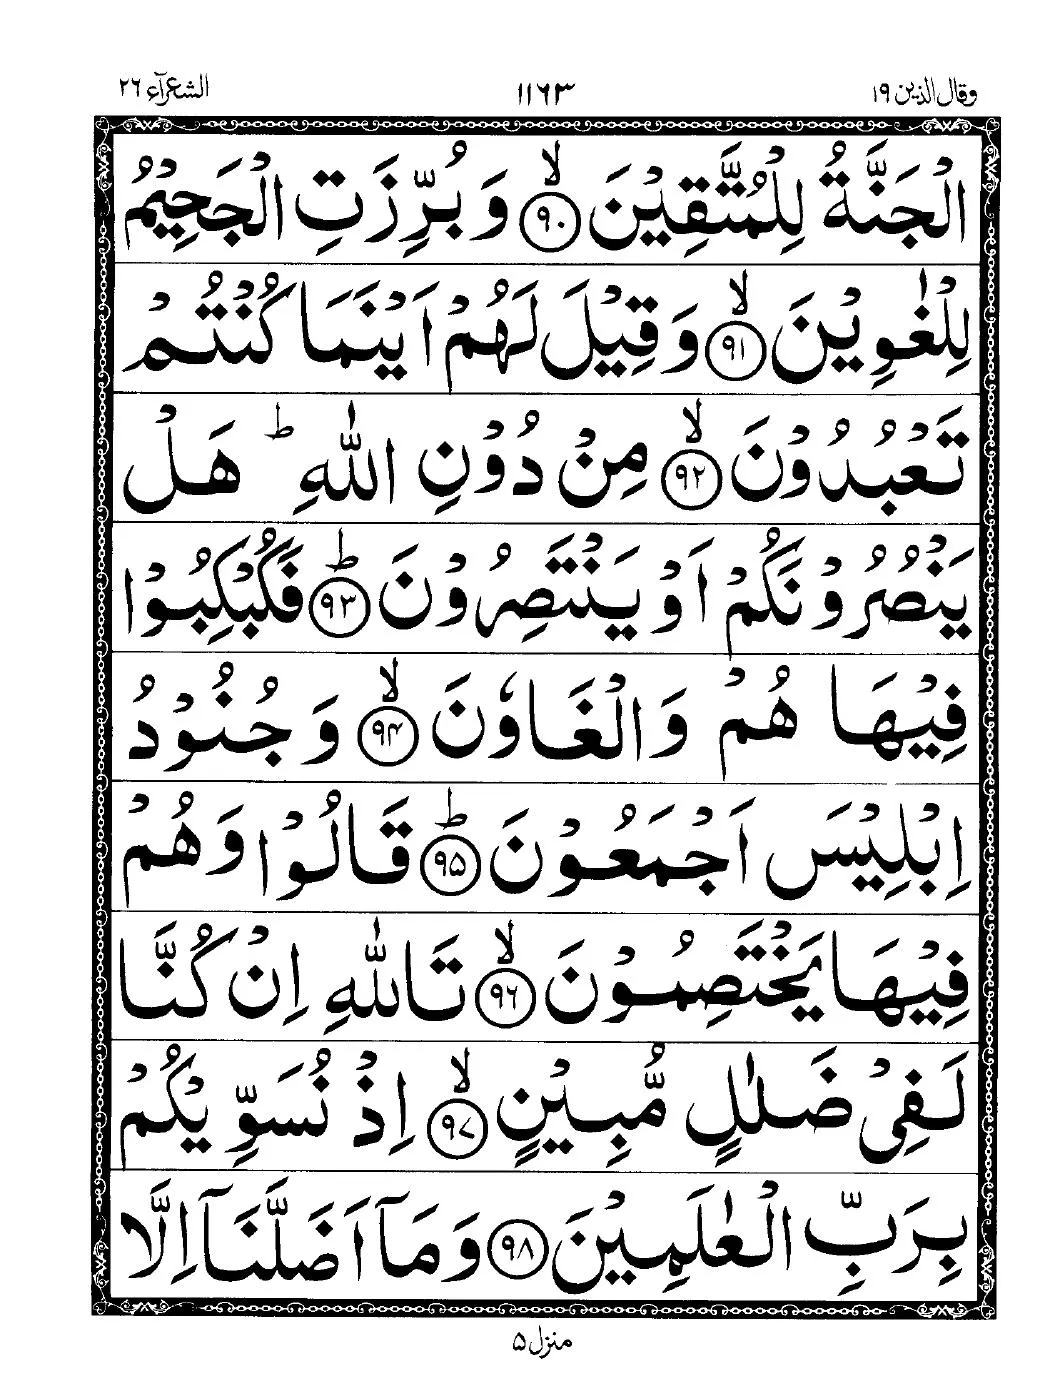 وقال الذین ۱۹ ۱۱۶۳ الشعرآء ۲۶
الْجَنَّةُ لِلْمُتَّقِيْنَ ۙ﴿۹۰﴾ وَ بُرِّزَتِ الْجَحِيْمُ
لِلْغٰوِيْنَ ۙ﴿۹۱﴾ وَ قِيْلَ لَهُمْ اَيْنَمَا كُنْتُمْ
تَعْبُدُوْنَ ۙ﴿۹۲﴾ مِنْ دُوْنِ اللّٰهِ ؕ هَلْ
يَنْصُرُوْنَكُمْ اَوْ يَنْتَصِرُوْنَ ؕ﴿۹۳﴾ فَكُبْكِبُوْا
فِيْهَا هُمْ وَالْغَاوٗنَ ۙ﴿۹۴﴾ وَ جُنُوْدُ
اِبْلِيْسَ اَجْمَعُوْنَ ؕ﴿۹۵﴾ قَالُوْا وَ هُمْ
فِيْهَا يَخْتَصِمُوْنَ ۙ﴿۹۶﴾ تَاللّٰهِ اِنْ كُنَّا
لَفِيْ ضَلٰلٍ مُّبِيْنٍ ۙ﴿۹۷﴾ اِذْ نُسَوِّيْكُمْ
بِرَبِّ الْعٰلَمِيْنَ ﴿۹۸﴾ وَ مَاۤ اَضَلَّنَاۤ اِلَّا
منزل ۵